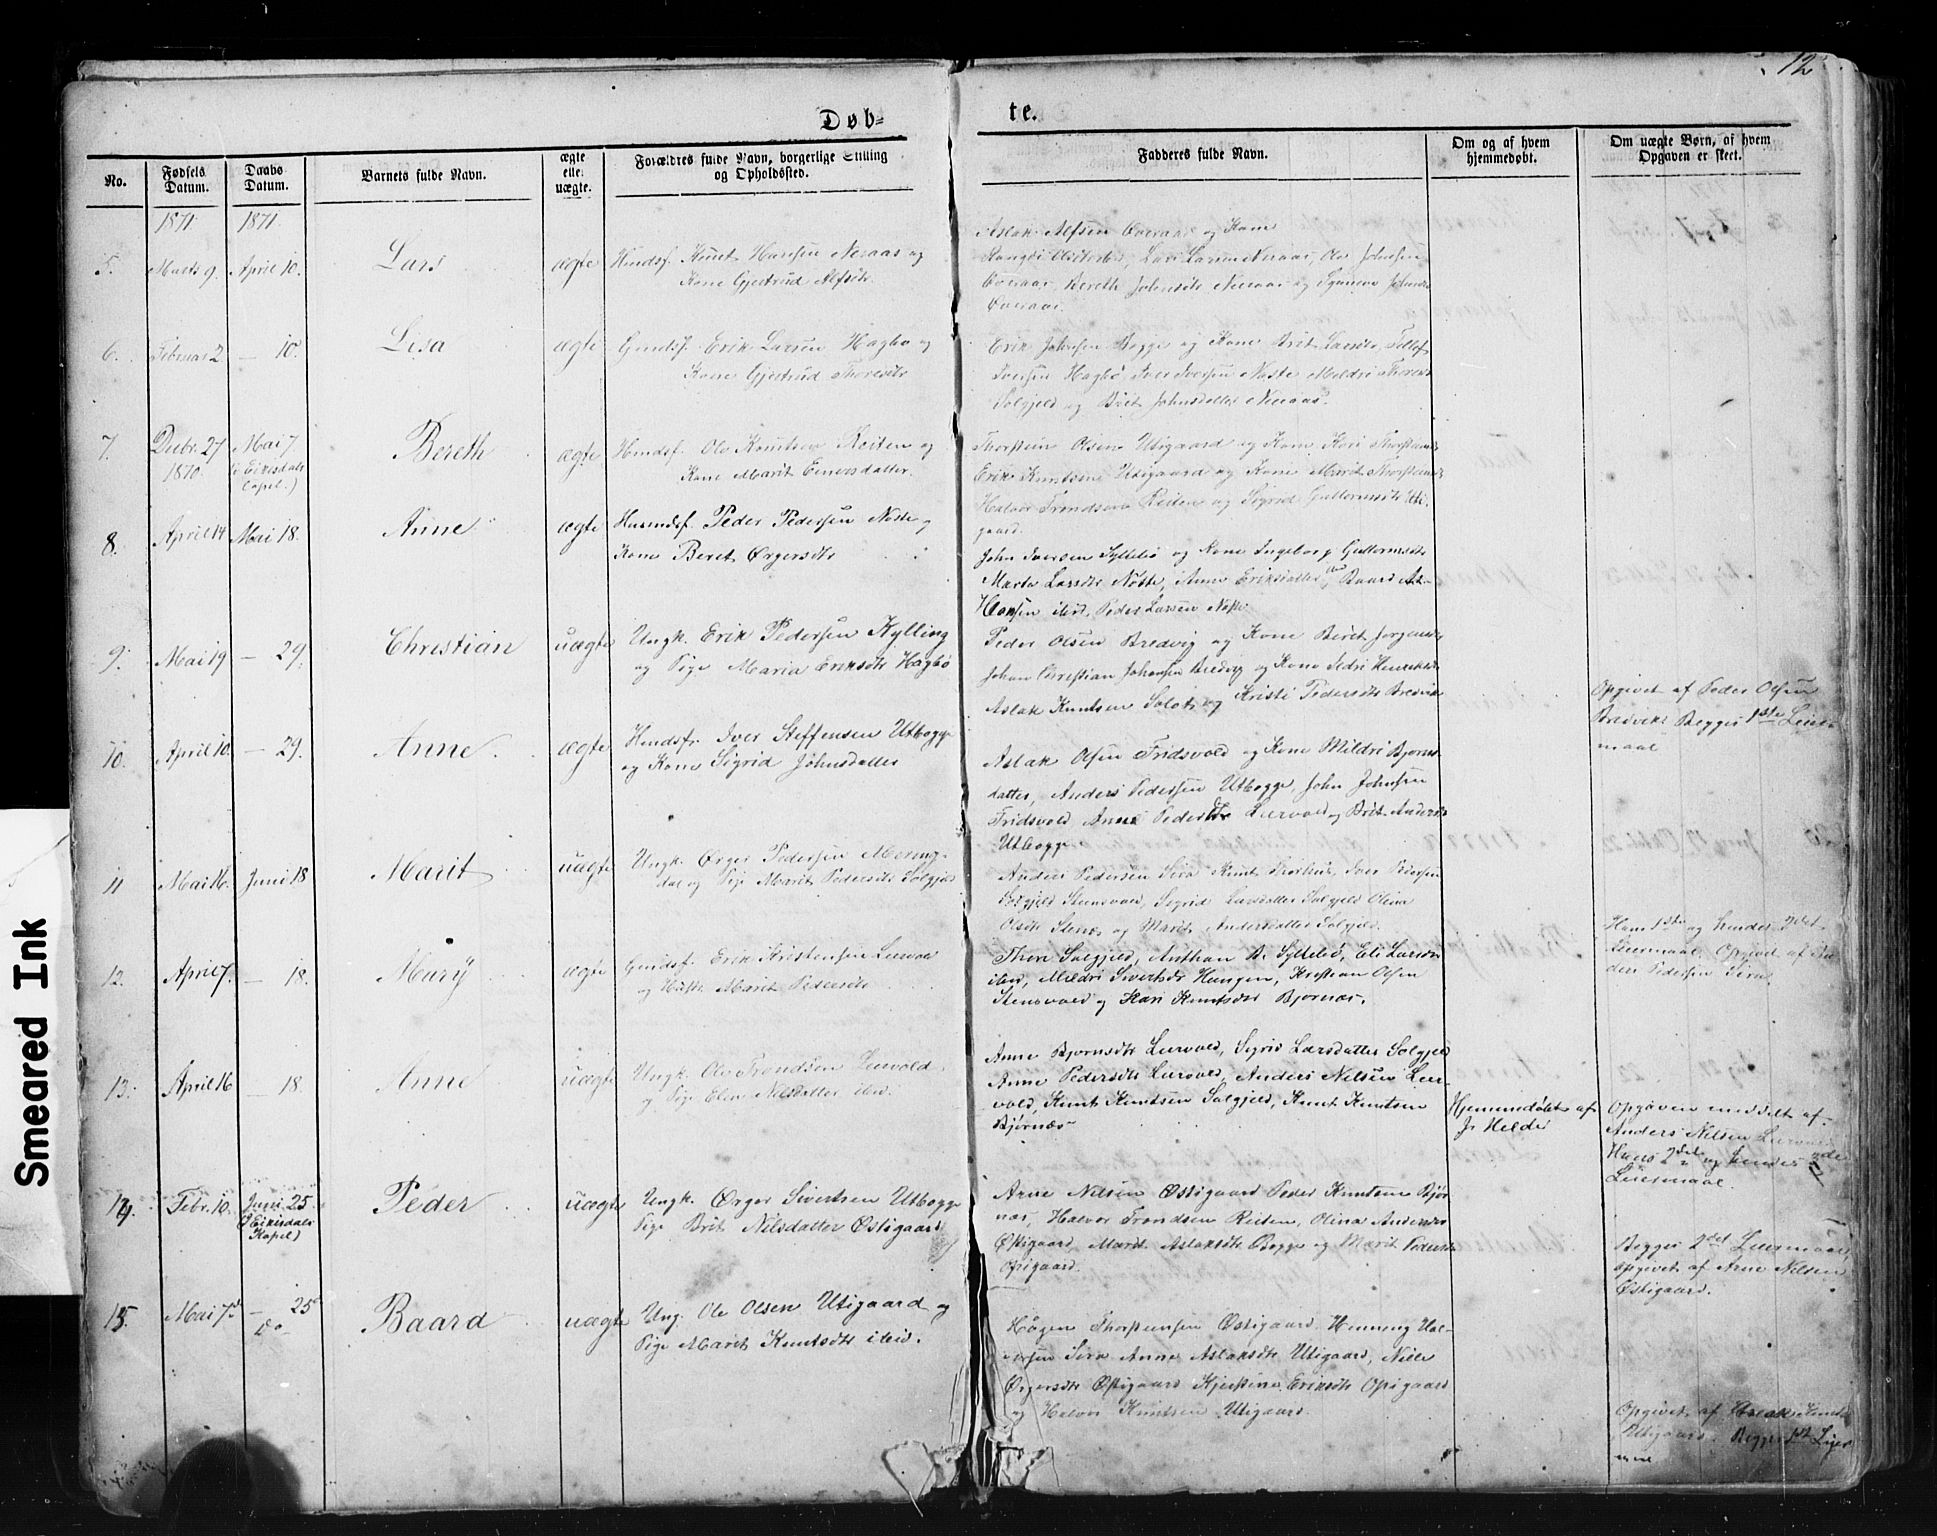 12
Døb-
te.
No.
Fødsels Datum.
Daabs Datum.
Barnets fulde Navn.
ægte eller uægte.
Forældres fulde Navn, borgerlige Stilling og Opholdssted.
Fadderes fulde Navn.
Om og af hvem hjemmedøbt.
Om uægte Børn, af hvem Opgaven er skeet.
1871 1871
5. Marts 9. April 10. Lars ægte Huusf. Knut Hansen Neraas og
Kone Gjertrud Alfsdtr.
Aslak Alfsen Overaas og Kone
Lars Larsen Neraas, Ole Johnsen
Overaas, Bereth Johnsdtr Neraas og Synneva Johnsdr
Overaas.
6. Februar 2 — 10. Lisa ægte Gaardsf. Erik Larsen Hagbø og
Kone Gjertrud Thoresdtr
Erik Johnsen Bogge og Kone Brit Larsdtr, Tollef
Iversen Hagbø, Iver Iversen Nøste Mildri Thoresdr
Solgjeld og Brit Johnsdatter Neeraas.
7. Decbr. 27 Mai 7 Bereth ægte Huusf. Ole Knutsen Reiten og
1870. (i Eikisdals Capel.) Kone Marit Einersdatter.
Thorstein Olsen Utigaard og Kone Kari Thorsteinsdr
Erik Knutsen Utigaard og Kone Marit Thorsteinsdr
Halvor Trondsen Reiten og Sigrid Guttormsdtr Uti-
gaard.
8. April 14 Mai 18. Anne ægte Huusmdsf. Peder Pedersen Nøste og
Kone Beret Ørgersdtr
John Iversen Syltebø og Kone Ingeborg Guttormsdtr
Marte Larsdtr Nøste, Anne Eriksdatter ibid, Baard
Hansen ibid, Peder Larsen Nøste
9. Mai 19 — 29. Christian uægte Ungk. Erik Pedersen Kylling
og Pige Maria Eriksdtr Hagbø
Peder Olsen Bredvig og Kone Beret Jørgensdr
Johan Christian Johansen Bredvig og Kone Henriksdr
Aslak Knutsen og Kristi Pedersdtr Bredvik
Opgivet af Peder Olsen
Bredvik. Begges 1ste Leier-
maal
10. April 10. — 29. Anne ægte Huusf. Iver Steffensen Utbogge
og Kone Sigrid Johnsdatter
Aslak Olsen Fridsvold og Kone Mildri Bjørns
datter, Anders Pedersen Utbogge, John Johnsen
Fridsvold, Anne Pedersdtr Leirvold og Brit Andersdr
Utbogge
11 Mai 16. Juni 18 Marit uægte Ungk. Ørger Pedersen Mering-
dal og Pige Marit Pedersdtr Solgjeld
Anders Pedersen Sira Knut Thorhus, Iver Pedersen
Solgjeld Stensvold, Sigrid Larsdatter Solgjeld Olina
Olsdtr Stenes og Marit Andersdatter Solgjeld.
Hans 1ste og hendes 2det
Leiermaal. Opgivet af An-
ders Pedersen Sira.
12. April 7. — 18. Mary ægte Gaardsf. Erik Kristensen Leirvold
og Hustr. Marit Pedersdtr
Thore Solgjeld, Anthon A. Syltebø, Eli Larsdtr
ibid, Mildri Sivertsdr Haugen, Kristian Olsen
Stensvold og Kari Knutsdtr Bjørnæs.
13. April 16 — 18. Anne uægte Ungk. Ole Trondsen Leirvold
og Pige Elen Nilsdatter ibid.
Anne Bjørnsdtr Leirvold, Sigrid Larsdatter Solgjeld
Anne Pedersdtr Leirvold, Anders Nilsen Leir-
vold, Knut Knutsen Solgjeld, Knut Knutsen
Bjørnæs
Hjemmedøbt af
J. Melder
Opgaven meddelt af
Anders Nilsen Leirvold
Hans 2det og hendes 2de
Leiermaal.
14. Febr. 10. Juni 25 Peder uægte Ungk. Ørger Sivertsen Utbogge
(i Eikisdals Kapel) Pige Brit Nilsdatter Østigaard
Arne Nilsen Østigaard Peder Knutsen Bjør-
næs, Halvor Trondsen Reiten, Olina Andersdr
Østigaard, Marit Aslaksdtr Bogge og Marit Pedersdr
Opigaard.
Begges 2det Leiermaal,
opgivet af Arne Nilsen
Østigaard.
15. Mai 7d — 25 Baard uægte Ung. Ole Olsen Utigaard og
do Pige Marit Knutsdtr ibid.
Hågen Thorsteinsen Østigaard. Henning Hal-
versen Sira Anne Aslaksdtr Utigaard, Nille
Ørgersdtr Østigaard Kjerstine Eriksdtr Opigaard
og Halvor Knutsen Utigaard.
Opgivet af Aslak Knuts
Utigaard. Begges 1st Leier
maal
Smeared Ink